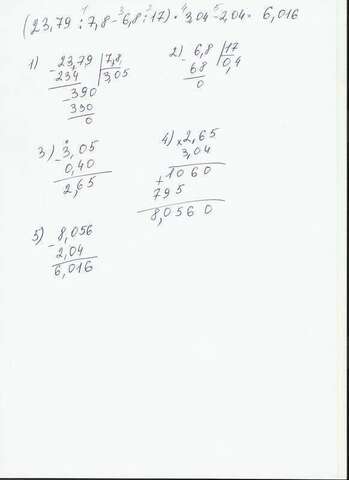 (23,79 :¹ 7,8 -³ 6,8 :² 17) ·⁴ 3,04 -⁵ 2,04 = 6,016
1) - 23,79 | 7,8
234 | 3,05
- 390
390
0
2) - 6,8 | 17
68 | 0,4
0
3) - 3,05
0,40
2,65
4) × 2,65
3,04
+ 1060
795
8,0560
5) - 8,056
2,04
6,016